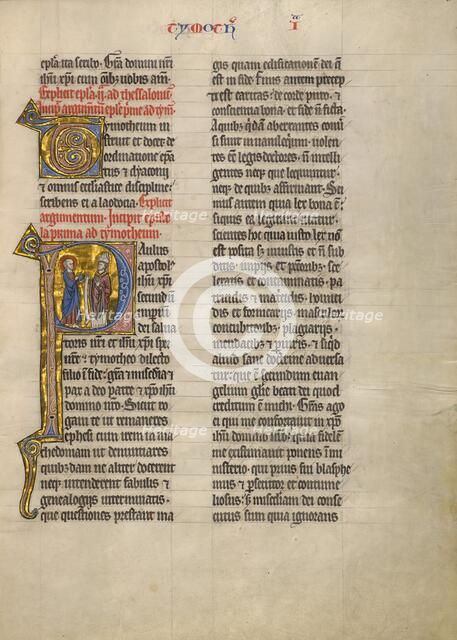 tymoth' i
epl'a ita scribo. Gra domini nri
ihu xpi cum omnibus vobis am.
Explicit epl'a ii. ad thessalonic.
Incipit argumtum eple prime ad tym.
Tymotheum in
struit et docet de
ordinatione epa
tus et diaconii
et omnis ecclastice discipline.
scribens ei a laodicia. Explicit
argumentum. Incipit episto
la prima ad tymotheum.
Paulus
apostol'
ihu xpi
secundum
impiu
dei salua
toris nri et ihu xpi spei
nre. tymotheo dilecto
filio in fide. gra misericordia et
pax a deo patre et xpo ihu
domino nro. Sicut ro
gaui te ut remaneres
ephesi cum irem in ma
chedoniam ut denuntiares
quibusdam ne aliter docerent
neque intenderent fabulis et
genealogiis interminatis.
que questiones prestant ma
gis quam edificationem dei que
est in fide. Finis autem precep
ti est caritas. de corde puro. et
conscientia bona. et fide non ficta.
A quibus quidam aberrantes conuer
si sunt in uaniloquium. uolen
tes esse legis doctores. non intelli
gentes neque que loquuntur.
neque de quibus affirmant. Sci
mus autem quia lex bona est
siquis ea legitime utatur.
sciens hoc quia iusto lex non
est posita sed iniustis et non sub
ditis. impiis et peccatoribus. sce
leratis et contaminatis. pa
tricidis et matricidis. homici
dis et fornicariis. masculorum
concubitoribus. plagiariis.
mendacibus et periuris. et siquid
aliud sane doctrine aduersa
tur. que est secundum euan
gelium glorie beati dei quod
creditum est michi. Gras ago
ei qui me confortauit in xpo
ihu domino nostro. quia fidelem
me existimauit ponens in mi
nisterio. qui prius fui blasphe
mus et persecutor et contume
liosus. sed misericordiam dei conse
cutus sum quia ignorans
Heritage
Heritage
Heritage
Heritage
Heritage